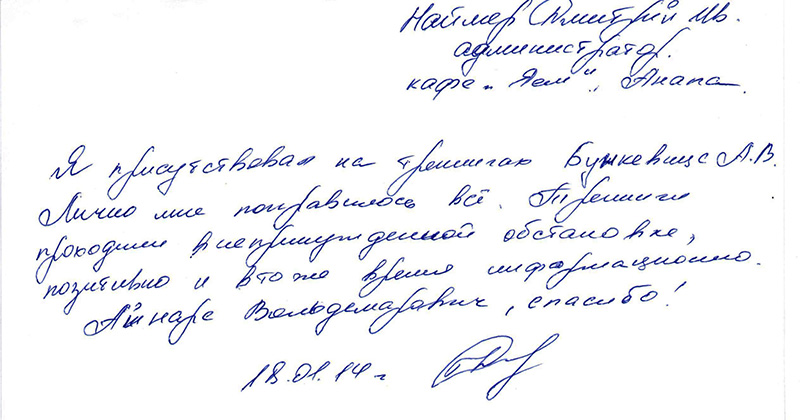 Наймер Дмитрий Ив.
администратор.
кафе „Яем", Анапа.
Я присутствовал на тренингах Бункевице А.В.
Лично мне понравилось всё. Тренинги
проходили в непринуждённой обстановке,
позитивно и в то же время информационно.
Айнарс Вольдемарович, спасибо!
18.01.14 г